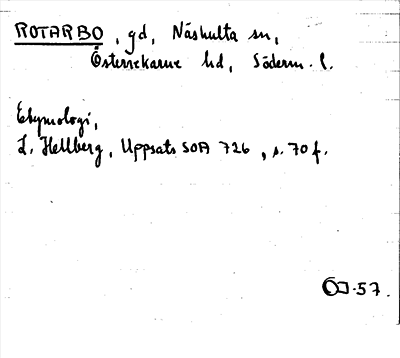 ROTARBO, gd, Näshulta sn,
Österrekarne hd, Söderm. l.
Etymologi,
L. Hellberg, Uppsats SOA 726, s. 70 f.
ÖJ-57.